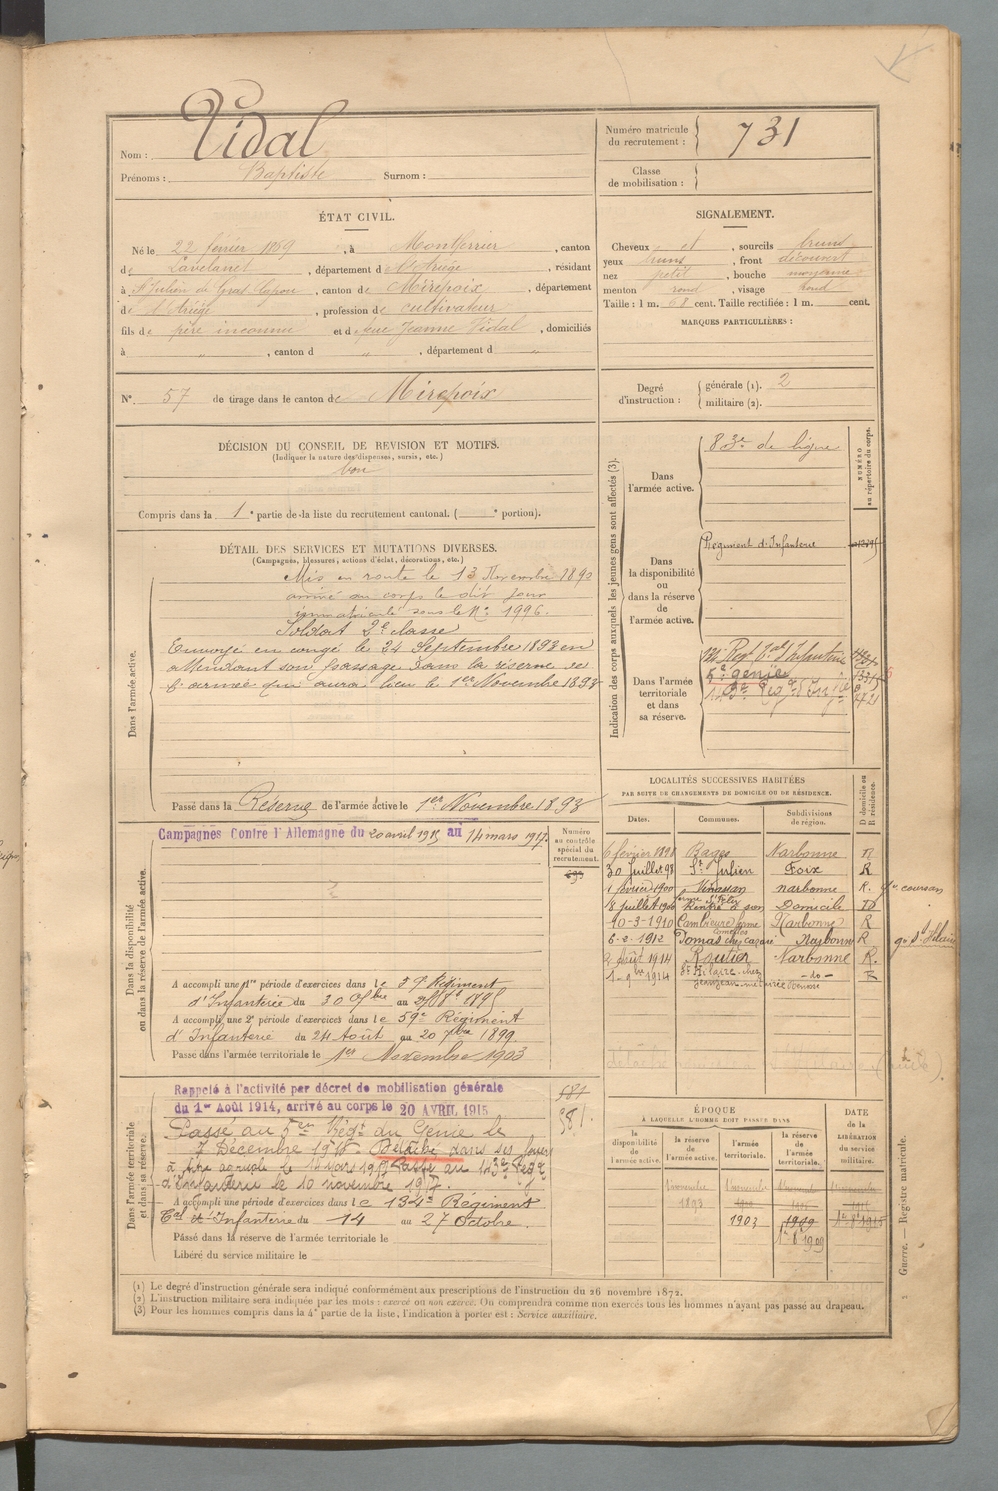 Nom : Vidal
Prénoms : Baptiste Surnom :
Numéro matricule du recrutement : 731
Classe de mobilisation :
ÉTAT CIVIL.
Né le 22 février 1869, à Montferrier, canton
de Lavelanet, département de l'Ariège, résidant
à St Julien de Gras Capou, canton de Mirepoix, département
de l'Ariège, profession de cultivateur
fils de père inconnu et de feue Jeanne Vidal, domiciliés
à „ , canton d „ , département d „
N° 57 de tirage dans le canton de Mirepoix
SIGNALEMENT.
Cheveux et , sourcils bruns
yeux bruns, front découvert
nez petit, bouche moyenne
menton rond, visage rond
Taille : 1 m. 68 cent. Taille rectifiée : 1 m. cent.
MARQUES PARTICULIÈRES :
Degré d'instruction : générale (1). 2
militaire (2).
DÉCISION DU CONSEIL DE REVISION ET MOTIFS.
(Indiquer la nature des dispenses, sursis, etc.)
bon
Compris dans la 1e partie de la liste du recrutement cantonal. ( e portion).
DÉTAIL DES SERVICES ET MUTATIONS DIVERSES.
(Campagnes, blessures, actions d'éclat, décorations, etc.)
Dans l'armée active.
Mis en route le 13 Novembre 1890
arrivé au corps le dit jour
immatriculé sous le N° 1996.
Soldat 2e classe
Envoyé en congé le 24 Septembre 1893 en
attendant son passage dans la réserve de
l'armée qui aura lieu le 1er Novembre 1893
Passé dans la Réserve de l'armée active le 1er Novembre 1893
Indication des corps auxquels les jeunes gens sont affectés (3).
NUMÉRO au répertoire du corps.
Dans l'armée active.
83e de ligne
Dans la disponibilité ou dans la réserve de l'armée active.
Régiment d'Infanterie
Dans l'armée territoriale et dans sa réserve.
5e génie
LOCALITÉS SUCCESSIVES HABITÉES
PAR SUITE DE CHANGEMENTS DE DOMICILE OU DE RÉSIDENCE.
Dates. Communes. Subdivisions de région. D domicile ou R résidence.
6 février 1898 Bages Narbonne R
30 Juillet 98 St Julien Foix R
1 février 1900 Vinassan narbonne R. coursan
8 Juillet 1900 Rentré à son Domicile D
10-3-1910 Narbonne R
6-2-1912 Narbonne R
2 Août 1914 Routier Narbonne R.
1-9bre 1914 St Hilaire chez -do- R
Dans la disponibilité ou dans la réserve de l'armée active.
Campagnes Contre l'Allemagne du 20 avril 1915 au 14 mars 1917.
Numéro au contrôle spécial du recrutement.
693
A accompli une 1re période d'exercices dans le 59e Régiment
d'Infanterie du 30
A accompli une 2e période d'exercices dans le 59e Régiment
d'Infanterie du 24 Août au 20 7bre 1899
Passé dans l'armée territoriale le 1er Novembre 1903
Dans l'armée territoriale et dans sa réserve.
Rappelé à l'activité par décret de mobilisation générale
du 1er Août 1914, arrivé au corps le 20 AVRIL 1915
Passé au 5eme Régt du Génie le
7 Décembre 1915 Détaché dans ses foyers
à titre agricole le mars 1917 Passé au 143e Régt
d'Infanterie le 10 novembre 1917.
A accompli une période d'exercices dans le 134e Régiment
Eal d'Infanterie du 14 au 27 Octobre.
Passé dans la réserve de l'armée territoriale le
Libéré du service militaire le
681
581
ÉPOQUE
À LAQUELLE L'HOMME DOIT PASSER DANS
la disponibilité de l'armée active. la réserve de l'armée active. l'armée territoriale. la réserve de l'armée territoriale. DATE de la LIBÉRATION du service militaire.
1 novembre 1893
1903
1909
1er 8bre 1909
1er 8bre 1915
(1) Le degré d'instruction générale sera indiqué conformément aux prescriptions de l'instruction du 26 novembre 1872.
(2) L'instruction militaire sera indiquée par les mots : exercé ou non exercé. On comprendra comme non exercés tous les hommes n'ayant pas passé au drapeau.
(3) Pour les hommes compris dans la 4e partie de la liste, l'indication à porter est : Service auxiliaire.
Guerre. — Registre matricule.